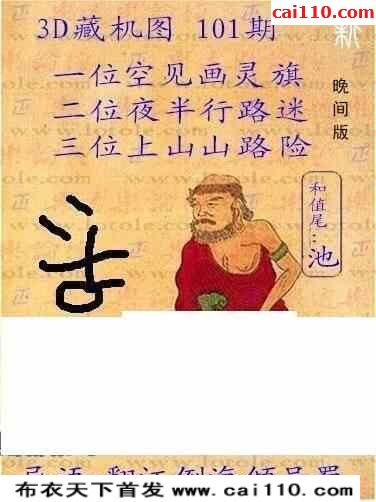 cai110.com
3D藏机图 101期
新
一位空见画灵旗
二位夜半行路迷
三位上山山路险
晚间版
和值尾:池
布衣天下首发 www.cai110.com